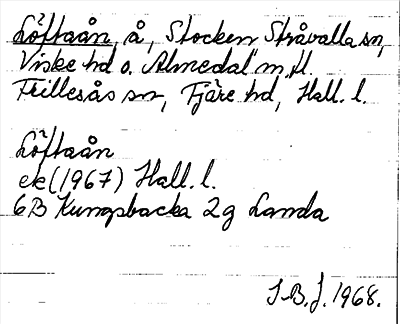 Löftaån, å, Stocken Stråvalla sn,
Viske hd o. Almedal m.fl.
Frillesås sn, Fjäre hd, Hall. l.
Löftaån
ek (1967) Hall. l.
6B Kungsbacka 2g Landa
S-B.J. 1968.